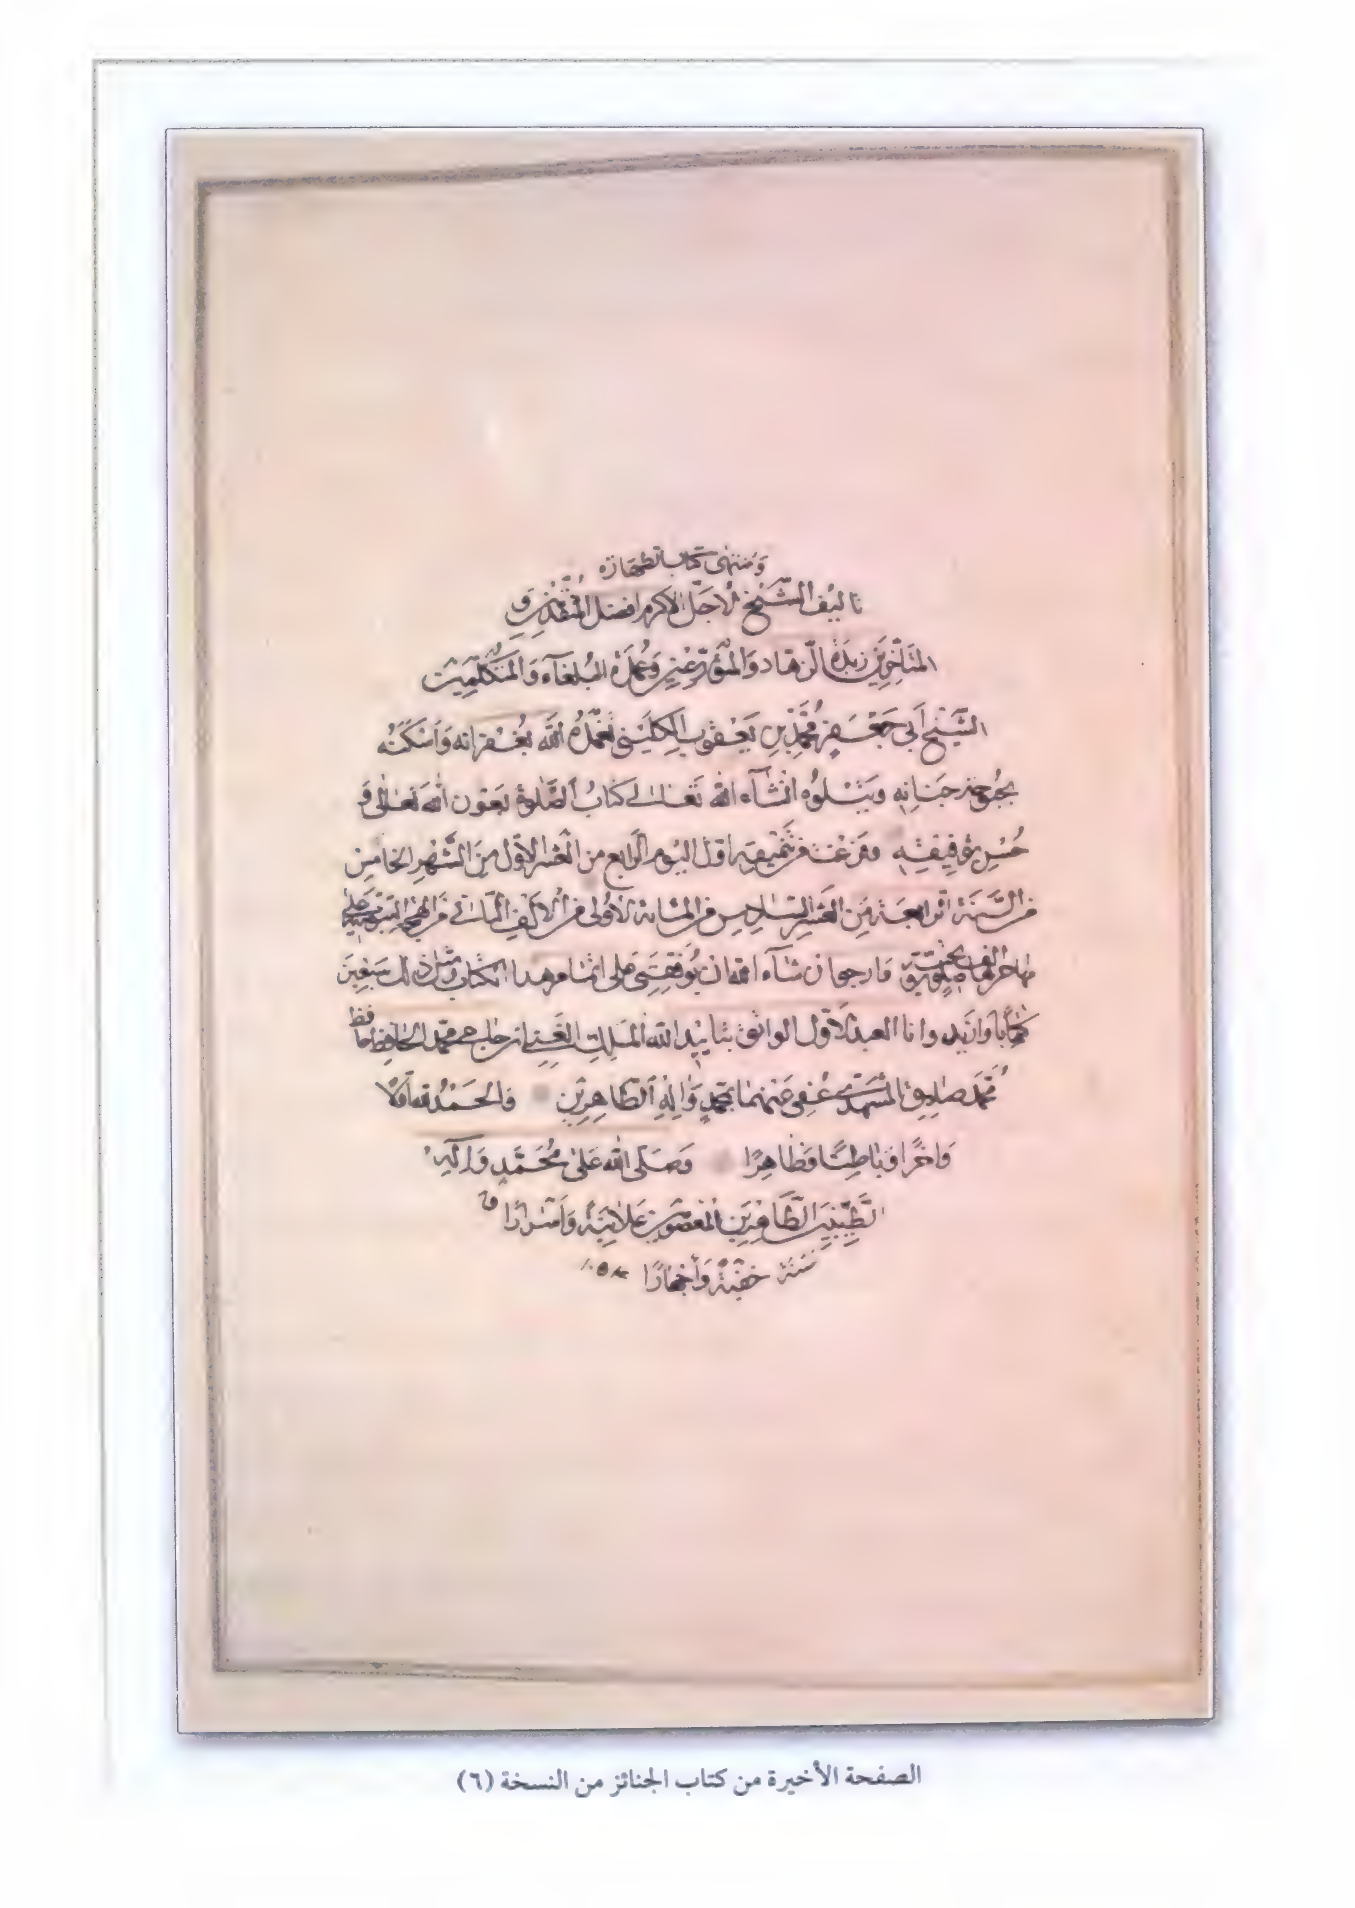 ومنتهى كتاب الطهارة
تاليف الشّيخ الاجلّ الاكرم افضل المتقدّمين و
المتاخّرين زبدة الزّهّاد والمتورّعين وعمدة البلغآء والمتكلّمين
الشّيخ أبى جعفر محمّد بن يعقوب الكلينى تغمّده الله بغفرانه واسكنه
بحبوحة جنانه ويتلوه انشآء الله تعالى كتاب الصّلوة بعون الله تعالى و
حسن توفيقه وفرغت من تنميقه اوّل اليوم الرّابع من العشر الاوّل من الشّهر الخامس
من السّنة الرّابعة من العشر السّادس من المائة الاولى من الالف الثّانى من الهجرة
فارجو ان شآء الله ان يوفّقنى على اتمام هذا الكتاب ومثل ذلك سبعين
كتابا وازيد وانا العبد الاوّل الواثق بتاييد الله الملك الغنى ابن حاجى محمّد الحافظ حافظ
محمّد صادق المشهدى عفى عنهما بمحمّد واله الطّاهرين والحمد لله اوّلا
واخرا وباطنا وظاهرا وصلّى الله على محمّد واله
الطّيّبين الطّاهرين المعصومين علانية وأسرارا
سنة خفية وأجهارا ١٠٥٤
الصفحة الأخيرة من كتاب الجنائز من النسخة (٦)